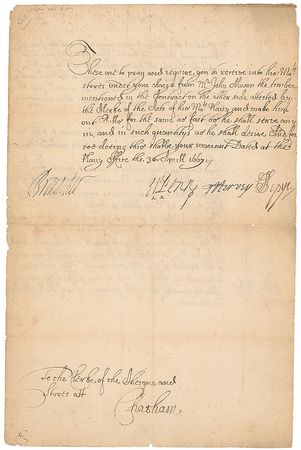 These are to pray and require, you to receive into his Ma:ts
stores under your charge from Mr John Mason the timber
mentioned in the Contract on the other side attested by
the Clerke of the Acts of his Ma:ts Navy and make him
out Bills for the same as fast as he shall serve any
in, and in such quantitys as he shall desire And for
soe doeing this shalbe your warrant Dated at the
Navy Office the 3d Aprill 1667
Brouncker
W Penn Tho Hervey S Pepys
To the Clerke of the Cheque and
Stores att
Chatham